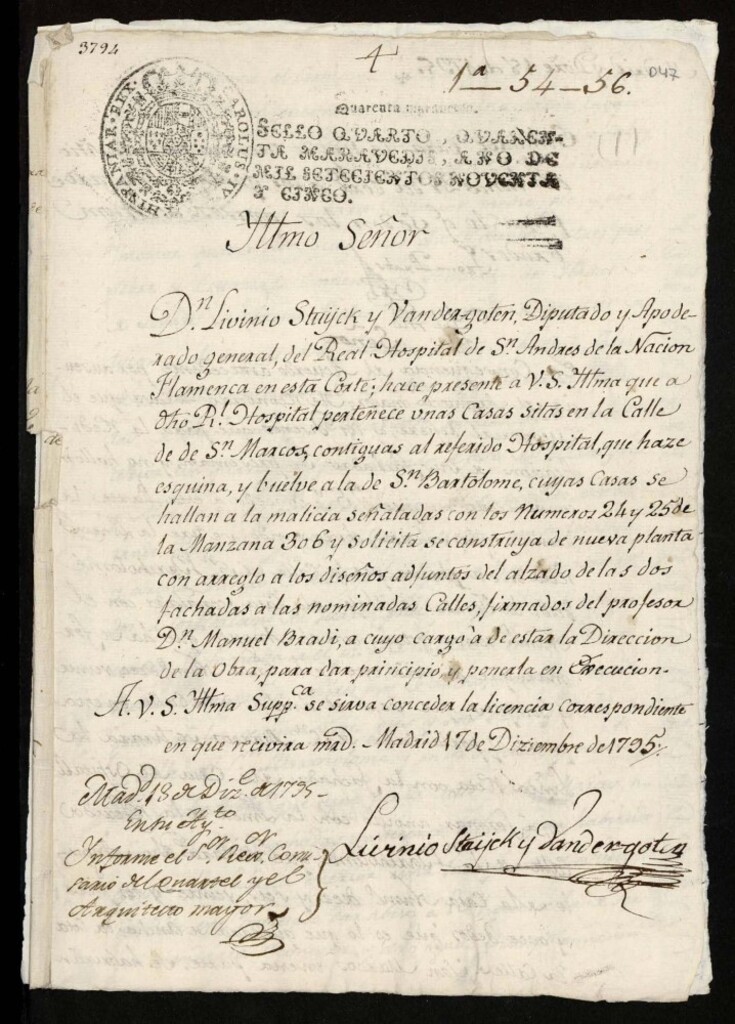 3794
4
1ª 54-56.
047
HISPANIAR. REX. CAROLUS IV
Quarenta maravedis.
SELLO QVARTO, QVAREN-
TA MARAVEDIS, AÑO DE
MIL SETECIENTOS NOVENTA
Y CINCO.
Yltmo Señor
Dn. Livinio Stuijck y Vander-goten, Diputado y Apode-
rado general, del Real Hospital de Sn. Andres de la Nacion
Flamenca en esta Corte; hace presente a V. S. Yltma que a
dho Rl. Hospital pertenece vnas Casas sitas en la Calle
de de Sn. Marcos, contiguas al referido Hospital, que haze
esquina, y buelve a la de Sn. Bartolome, cuyas Casas se
hallan a la malicia señaladas con los Numeros 24 y 25 de
la Manzana 306 y solicita se construya de nueva planta
con arreglo a los diseños adjuntos del alzado de las dos
fachadas a las nominadas Calles, firmados del profesor
Dn. Manuel Bradi, a cuyo cargo a de estar la Direccion
de la Obra, para dar principio y ponerla en Execucion.
A. V. S. Yltma Suppca. se sirva conceder la licencia correspondiente
en que recivira mrd. Madrid 17 de Diziembre de 1795.
Madd. 18 de Dize. de 1795
En su Ayto.
Informe el Sor. Reor. Comi-
sario del Quartel y el
Arquitecto mayor
Livinio Stuijck y Vandergoten